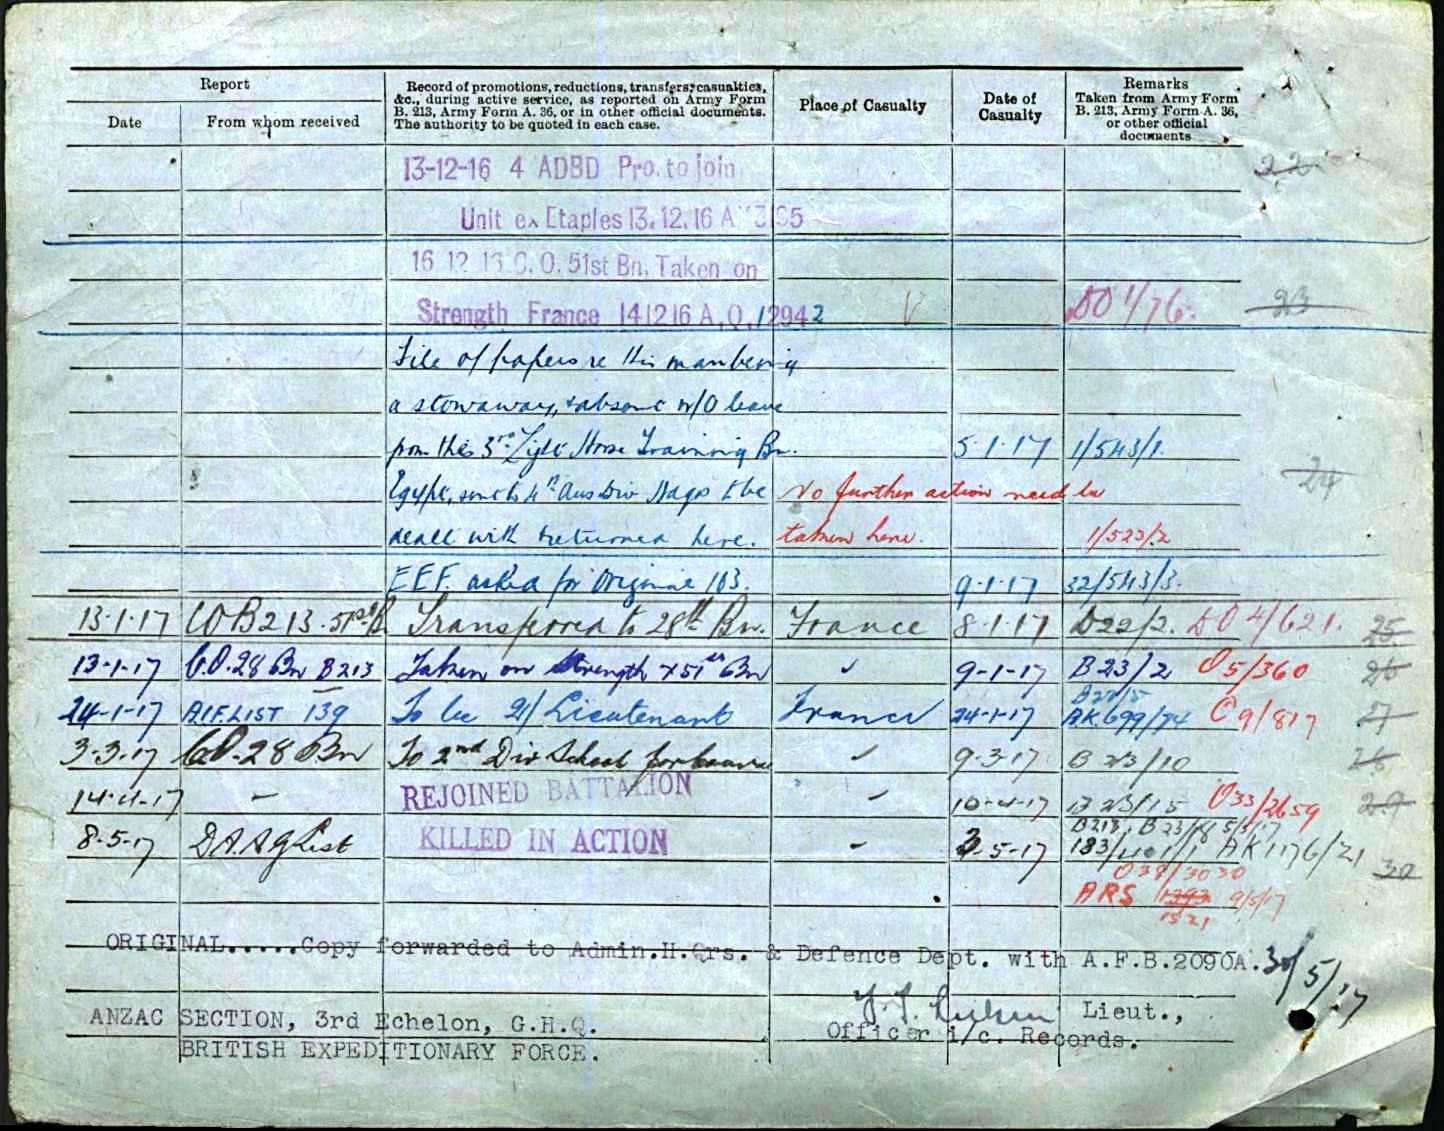 Report
Record of promotions, reductions, transfers, casualties, &c., during active service, as reported on Army Form B. 213, Army Form A. 36, or in other official documents. The authority to be quoted in each case.
Place of Casualty
Date of Casualty
Remarks Taken from Army Form B. 213, Army Form A. 36, or other official documents
Date
From whom received
13-12-16 4 ADBD Pro. to join 22
Unit ex Etaples 13.12.16
16 12 16 C.O. 51st Bn. Taken on
Strength France 141216 A.O. 12942 DO 1/76. 23
File of papers re this man being
a stowaway, & absent w/o leave
from the 3rd Light Horse Training Bn. 5-1-17 1/543/1.
Egypt, sent to 4th Aus Div Hdqs to be No further action need be 24
dealt with & returned here. taken here. 1/523/2
E.E.F. asked for Original 103. 9-1-17 32/543/3.
13-1-17 CO B213. 51st B. Transferred to 28th Bn. France 8-1-17 D22/2. DO 4/621. 25
13-1-17 C.O. 28 Bn B213 Taken on Strength 51st Bn 9-1-17 B23/2 O5/360 26
24-1-17 A.I.F. LIST 139 To be 2/Lieutenant France 24-1-17 AK 699/74 O9/817 27
3-3-17 C.O. 28 Bn To 2nd Div School for course 9-3-17 B 23/10 28
14-4-17 - REJOINED BATTALION 10-4-17 B 23/15 O33/2659 29
8-5-17 D.A.A.G List KILLED IN ACTION 3-5-17 B213, B23/18 5/5/17
AK1176/21 30
O38/3030
ARS 1393 9/5/17
1521
ORIGINAL.....Copy forwarded to Admin.H.Qrs. & Defence Dept. with A.F.B.2090A. 30/5/17
Lieut.,
ANZAC SECTION, 3rd Echelon, G.H.Q. Officer i/c. Records.
BRITISH EXPEDITIONARY FORCE.